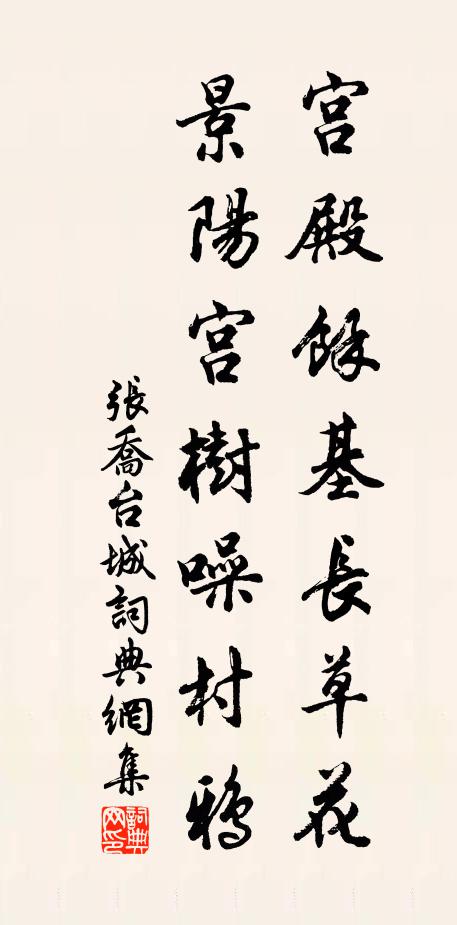 宫殿餘基長草花
景陽宫樹噪村鴉
張喬台城詞典網集
詞典網印